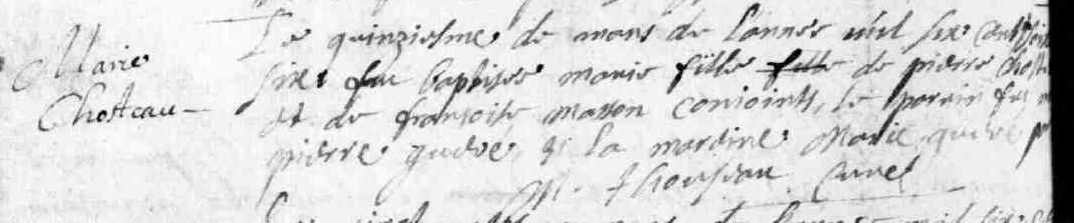 Marie
Chotteau
Le quinziesme de mars de lannee mil six cent
six fut baptisee marie fille fille de pierre Chott
et de fransoise masson conioints, le parain fut
pierre guere, et la maraine Marie guere
Curé